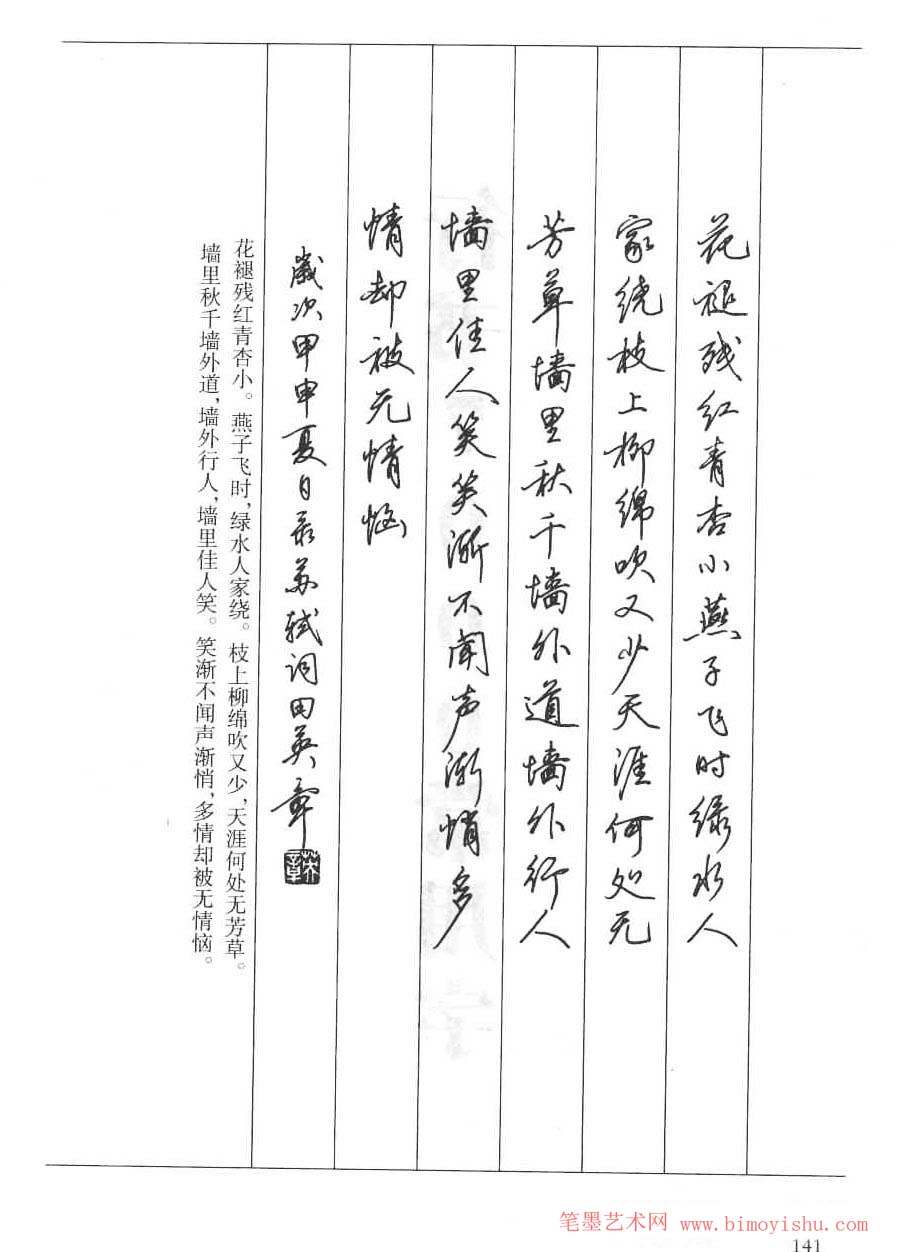 花褪残红青杏小燕子飞时绿水人
家绕枝上柳绵吹又少天涯何处无
芳草墙里秋千墙外道墙外行人
墙里佳人笑笑渐不闻声渐悄多
情却被无情恼
歲次甲申夏日录苏轼词田英章
英章
花褪残红青杏小。燕子飞时，绿水人家绕。枝上柳绵吹又少，天涯何处无芳草。
墙里秋千墙外道，墙外行人，墙里佳人笑。笑渐不闻声渐悄，多情却被无情恼。
笔墨艺术网 www.bimoyishu.com
141